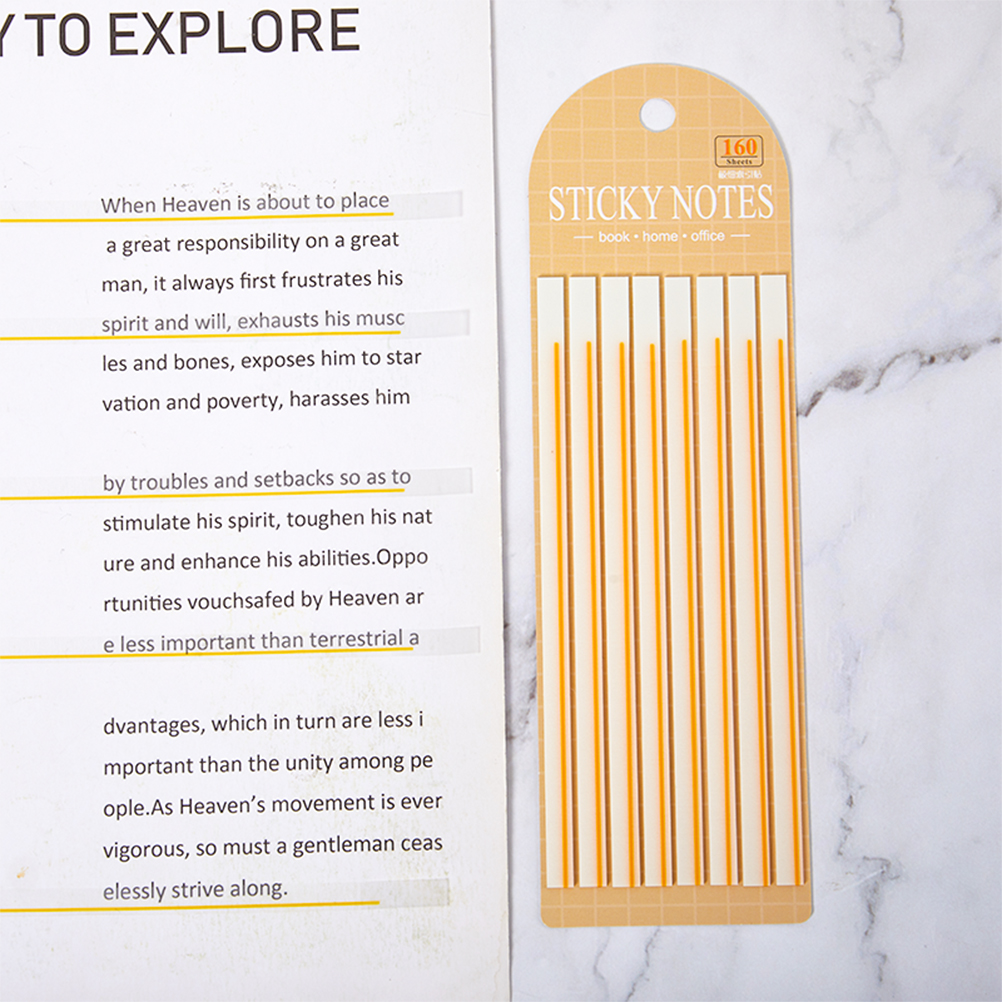 Y TO EXPLORE
When Heaven is about to place
a great responsibility on a great
man, it always first frustrates his
spirit and will, exhausts his musc
les and bones, exposes him to star
vation and poverty, harasses him
by troubles and setbacks so as to
stimulate his spirit, toughen his nat
ure and enhance his abilities.Oppo
rtunities vouchsafed by Heaven ar
e less important than terrestrial a
dvantages, which in turn are less i
mportant than the unity among pe
ople.As Heaven's movement is ever
vigorous, so must a gentleman ceas
elessly strive along.
160
Sheets
STICKY NOTES
book • home • office